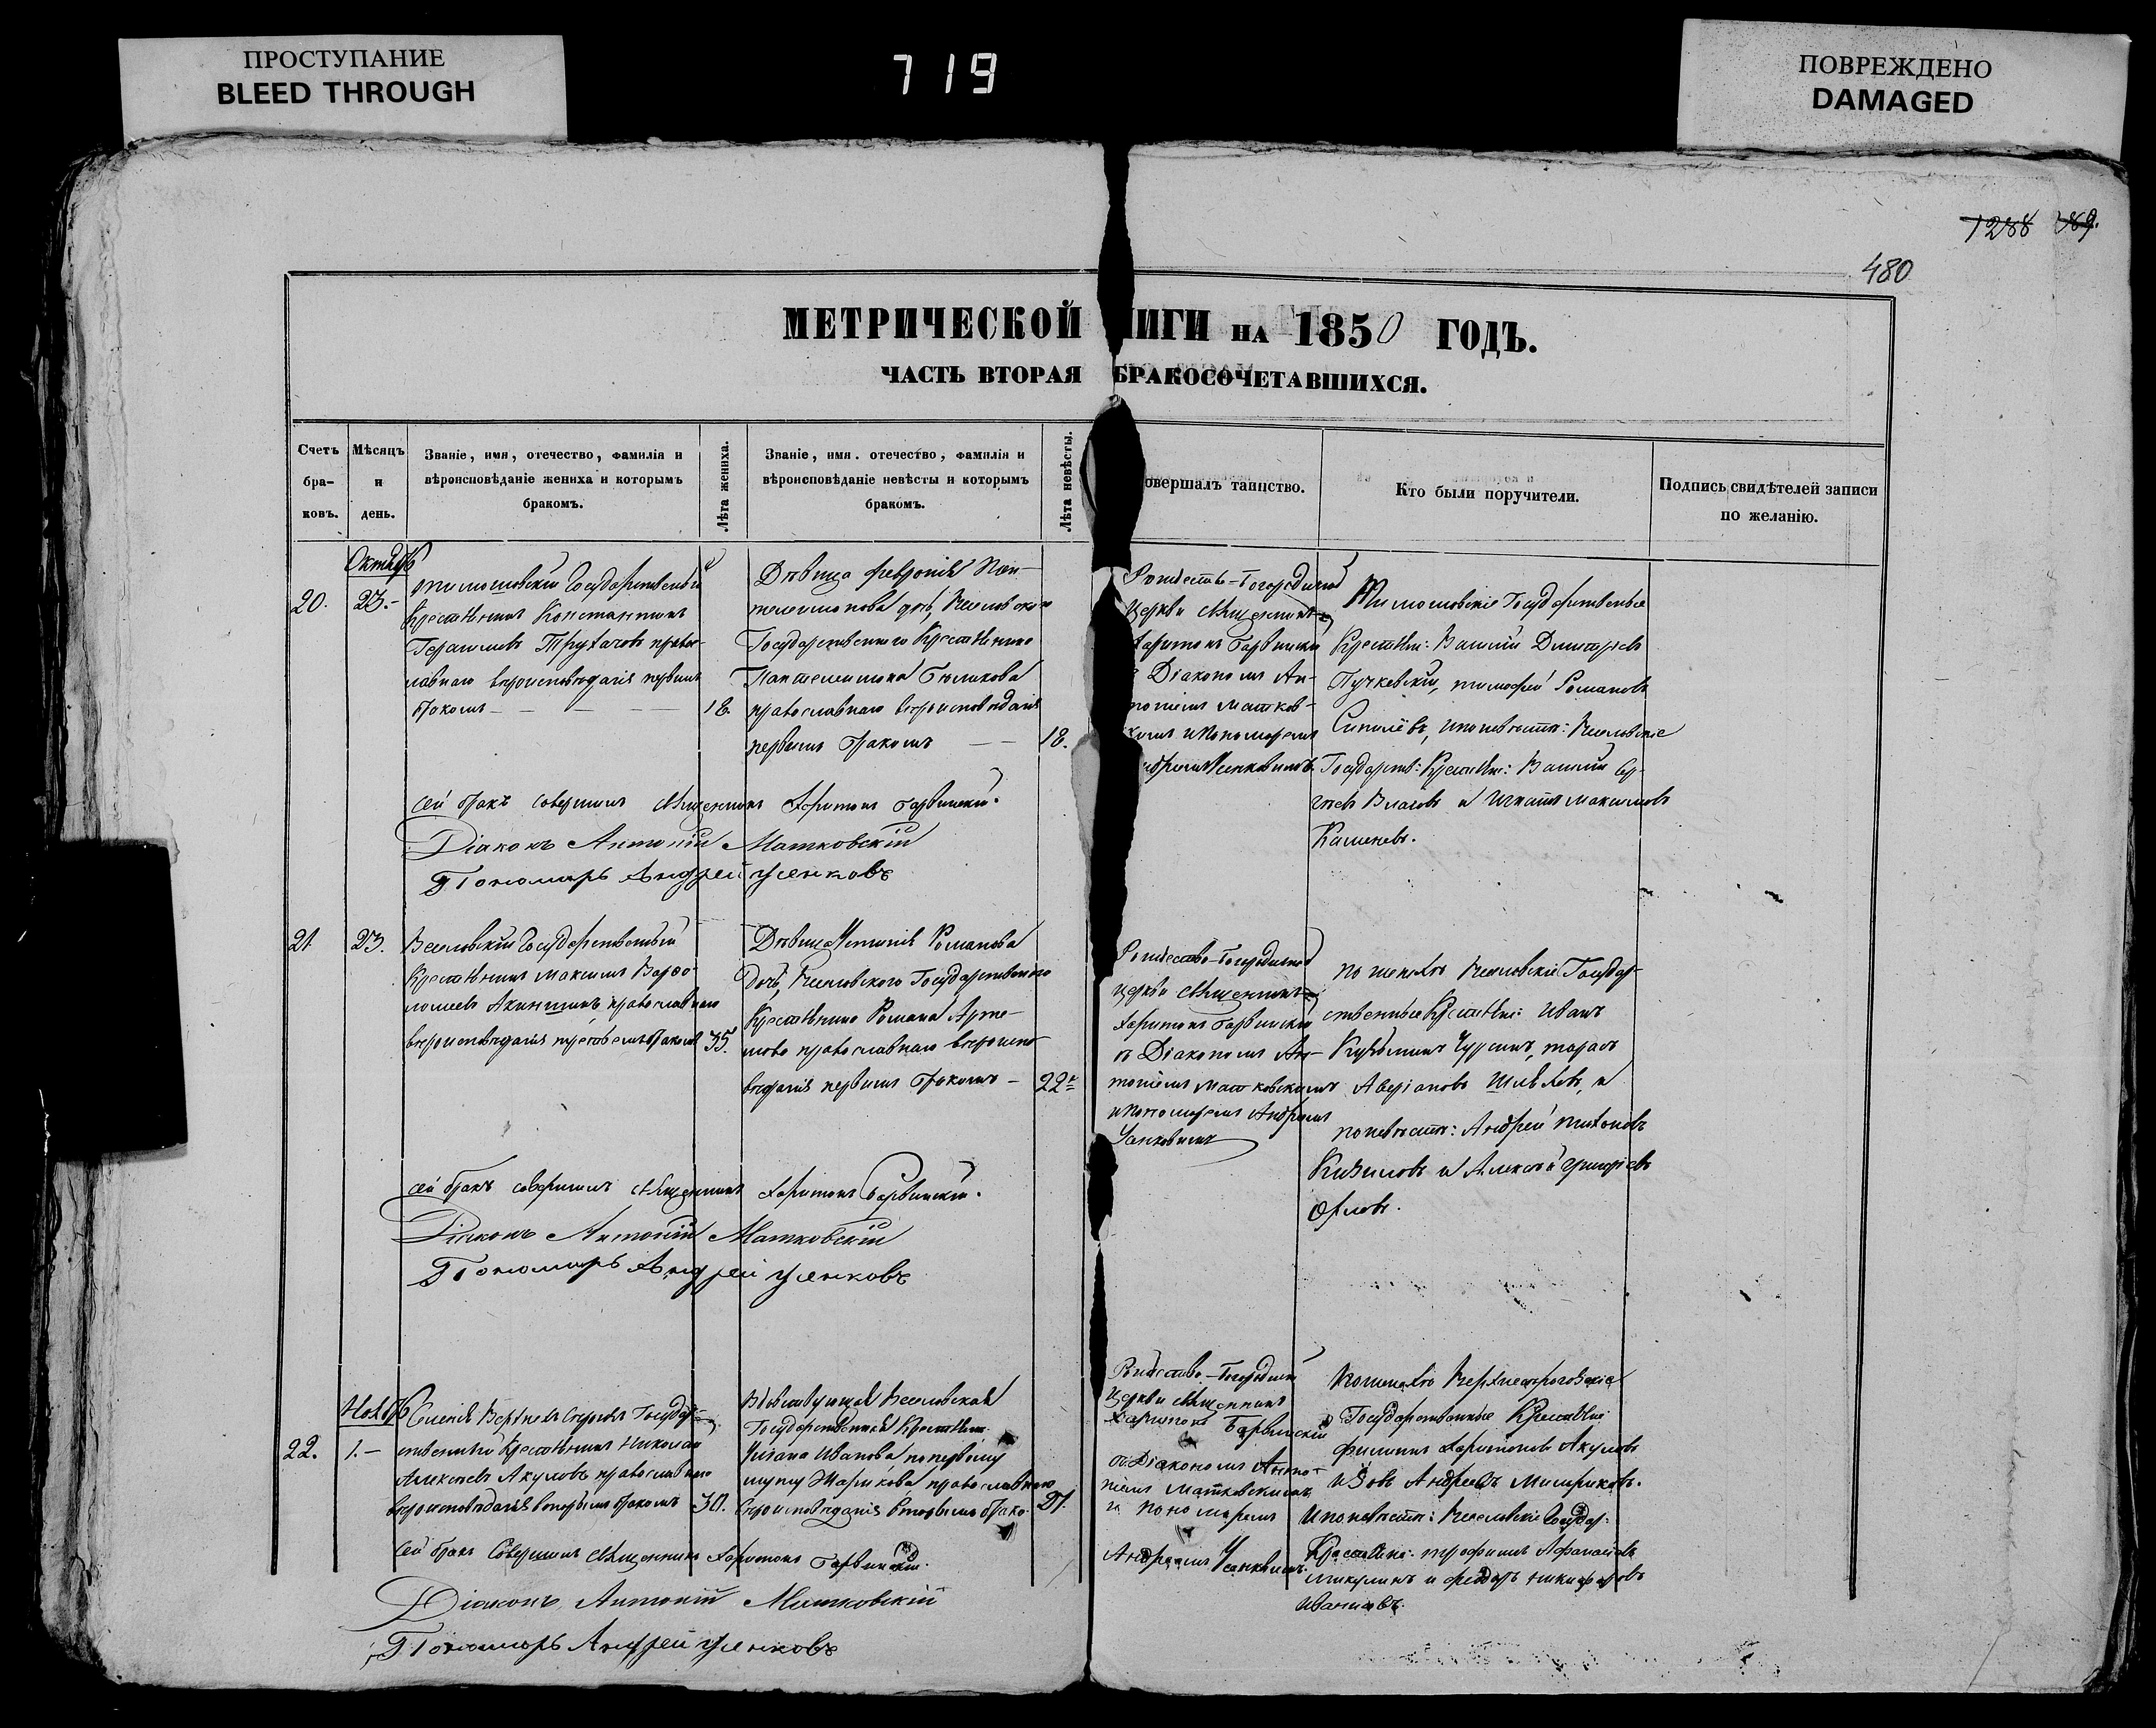 ПРОСТУПАНИЕ
BLEED THROUGH
719
ПОВРЕЖДЕНО
DAMAGED
1288 189.
480
МЕТРИЧЕСКОЙ НИГИ НА 1850 ГОДЪ.
ЧАСТЬ ВТОРАЯ БРАКОСОЧЕТАВШИХСЯ.
Счетъ бра- ковъ.
Мѣсяцъ и день.
Званіе, имя, отечество, фамилія и
вѣроисповѣданіе жениха и которымъ
бракомъ.
Лѣта жениха.
Званіе, имя. отечество, фамилія и
вѣроисповѣданіе невѣсты и которымъ
бракомъ.
Лѣта невѣсты.
овершалъ таинство.
Кто были поручители.
Подпись свидѣтелей записи
по желанію.
20.
Октябр
23.-
Государственный
Крестьянинъ Константинъ
Герасимовъ Трухачовъ правос-
лавнаго вѣроисповѣданія первымъ
бракомъ
18.
Дѣвица Февронія Пан-
телеимонова дочь, Веселовскаго
Государственнаго Крестьянина
Пантелеимона Бѣликова
православнаго вѣроисповѣданія
первымъ бракомъ
18.
Рождество-Богородичной
церкви Священникъ
Харитонъ Барвинскій
Діакономъ Ан-
тоніемъ Матков-
скимъ и Пономаремъ
Государственные
Крестьяне: Василій Димитріевъ
Пучковскій, Тимофей Романовъ
и по невѣстѣ: Веселовскіе
Государств: Крестьяне: Василій Сер-
гѣевъ Власовъ и Игнатій Максимовъ
Каменевъ.
Сей бракъ совершилъ Священникъ Харитонъ Барвинскій.
Діаконъ Антоній Матковскій
Пономарь Андрей Усенковъ
21.
23.
Веселовскій Государственный
Крестьянинъ Максимъ Варѳо-
ломеевъ Акиншинъ православнаго
вѣроисповѣданія третьимъ бракомъ
35.
Дѣвица Романова
дочь, Веселовскаго Государственнаго
Крестьянина Романа Арте-
мова православнаго вѣроиспо-
вѣданія первымъ бракомъ -
22
Рождество-Богородичной
церкви Священникъ
Харитонъ Барвинскій
съ Діакономъ Ан-
тоніемъ Матковскимъ
и Пономаремъ Андреемъ
Усенковымъ
по женихѣ Веселовскіе Государ-
ственные Крестьяне: Иванъ
Кузьминъ Чурсинъ, Тарасъ
Аверіановъ и
по невѣстѣ: Андрей Тихоновъ
Кизиловъ и Алексѣй Григорьевъ
Орловъ.
Сей бракъ совершилъ Священникъ Харитонъ Барвинскій.
Діаконъ Антоній Матковскій
Пономарь Андрей Усенковъ
22.
Ноябр
1.-
Государ-
ственный Крестьянинъ Николай
Алексѣевъ Акуловъ православнаго
вѣроисповѣданія вторымъ бракомъ
30.
Вдовствующая Веселовская
Государственная Крестьянка
Ульяна Иванова по первому
мужу Жарикова православнаго
вѣроисповѣданія вторымъ брако-
27.
Рождество-Богородичной
церкви Священникъ
Харитонъ Барвинскій
съ Діакономъ Анто-
ніемъ Матковскимъ
и Пономаремъ
Андреемъ Усенковымъ
по женихѣ
Государственные Крестьяне
Филиппъ Харитоновъ Акуловъ
Андреевъ
и по невѣстѣ: Веселовскіе Государ:
Крестьяне: Трофимъ Афанасьевъ
Микулинъ и Ѳедоръ Никифоровъ
Сей бракъ Совершилъ Священникъ Харитонъ Барвинскій.
Діаконъ Антоній Матковскій
Пономарь Андрей Усенковъ